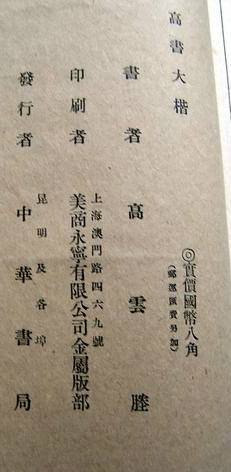 高書大楷
◎實價國幣八角
(郵運匯費另加)
書者 高雲塍
上海澳門路四六九號
印刷者 美商永寧有限公司金屬版部
昆明及各埠
發行者 中華書局